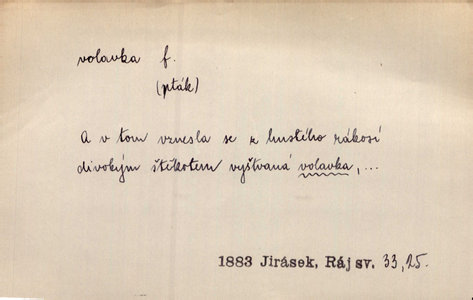 volavka f.
(pták)
A v tom vznesla se z hustého rákosí
divokým štěkotem vyštvaná volavka, ...
1883 Jirásek, Ráj sv. 33, 25.